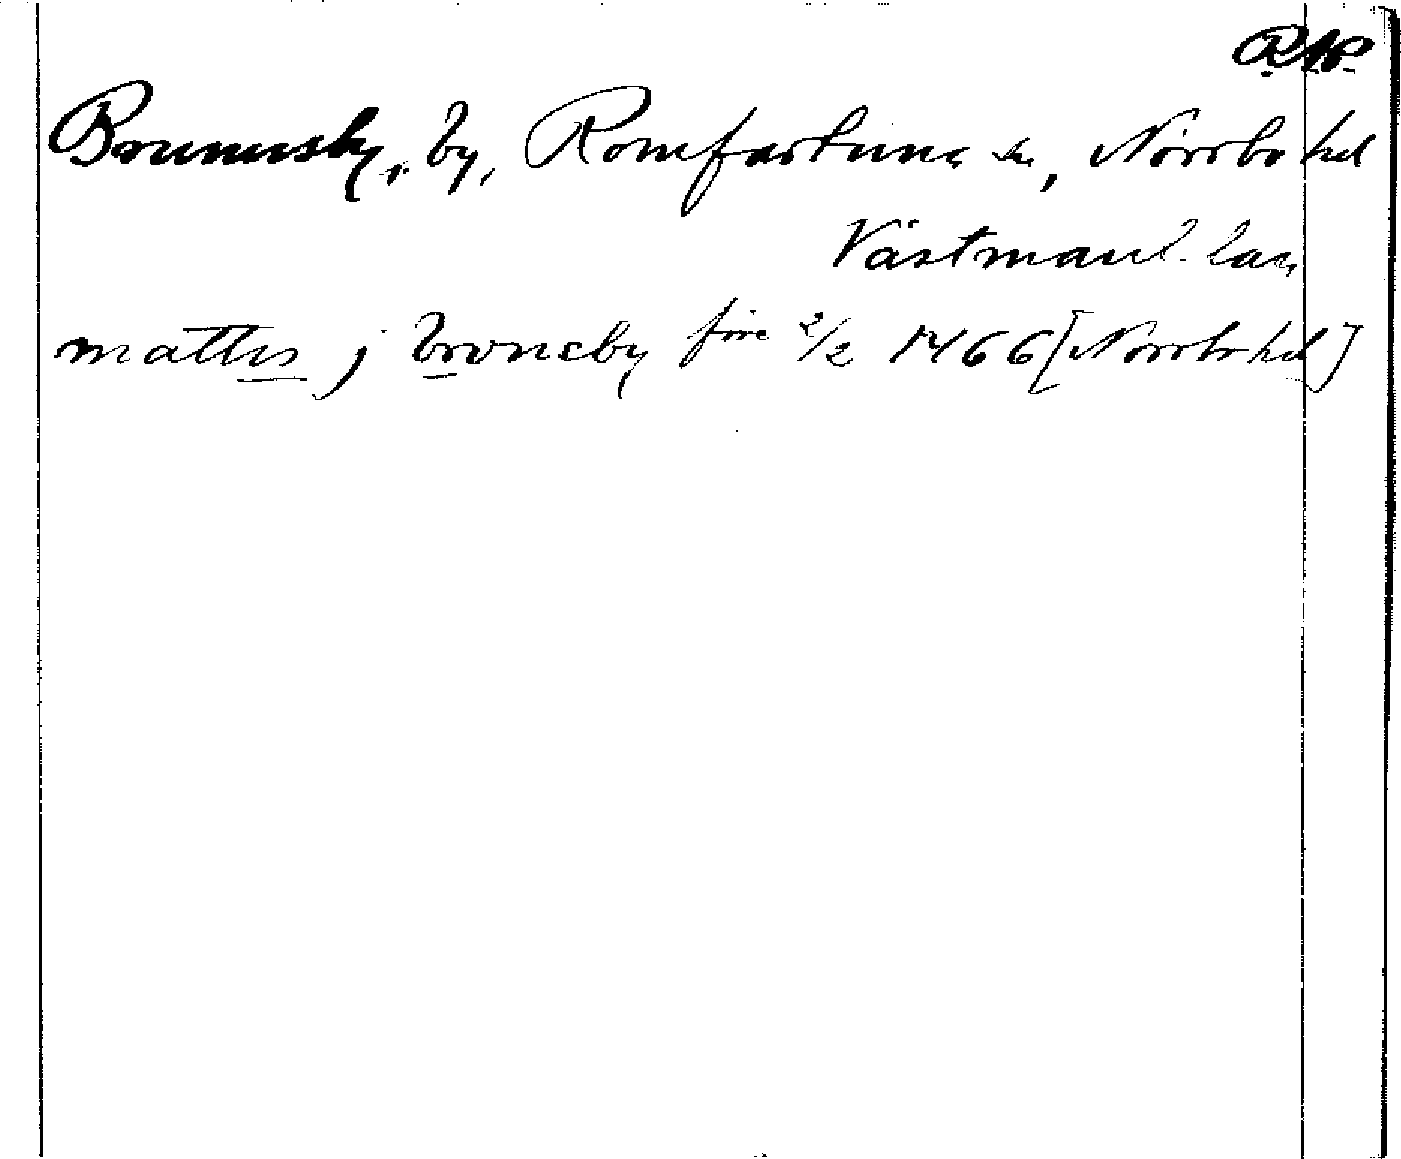 RAP.
Brunnsby, by, Romfartuna sn, Norrbo hd
Västmanl. län
mattis j broneby före 2/2 1466 [Norrbo hd]